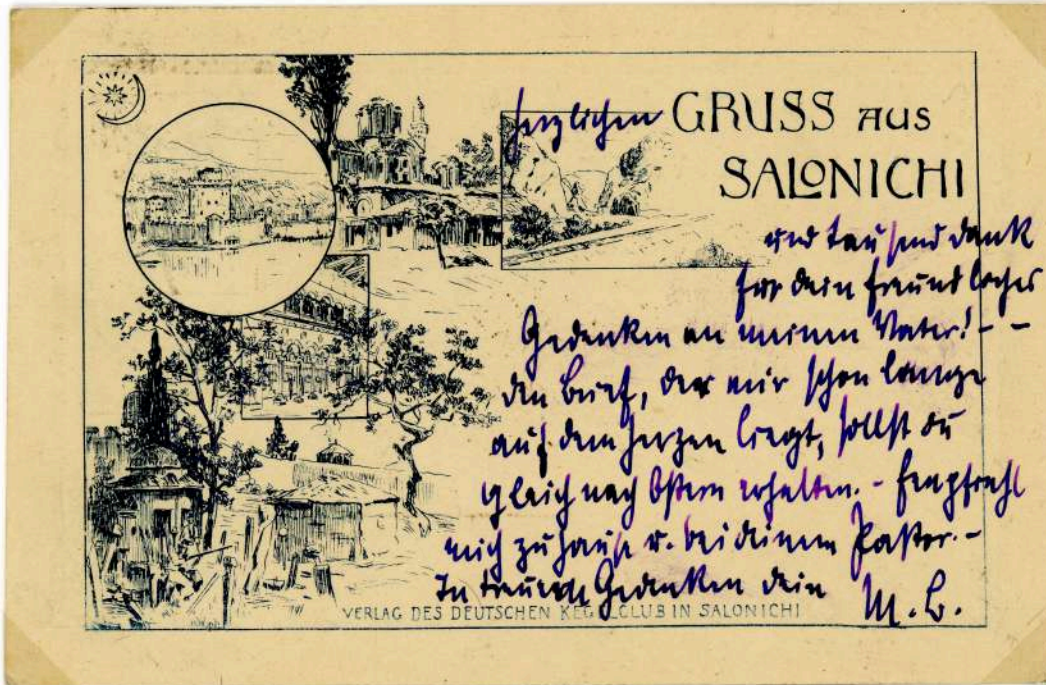 herzlichen GRUSS AUS
SALONICHI
und tausend Dank
für dein freundliches
Gedenken an meinen Vater! - -
den Brief, der mir schon lange
auf dem Herzen liegt, sollst du
gleich nach Ostern erhalten. - Empfiehl
mich zu Hause u. bei deinem Pastor. -
In treuem Gedenken dein
M. B.
VERLAG DES DEUTSCHEN KEGELCLUB IN SALONICHI